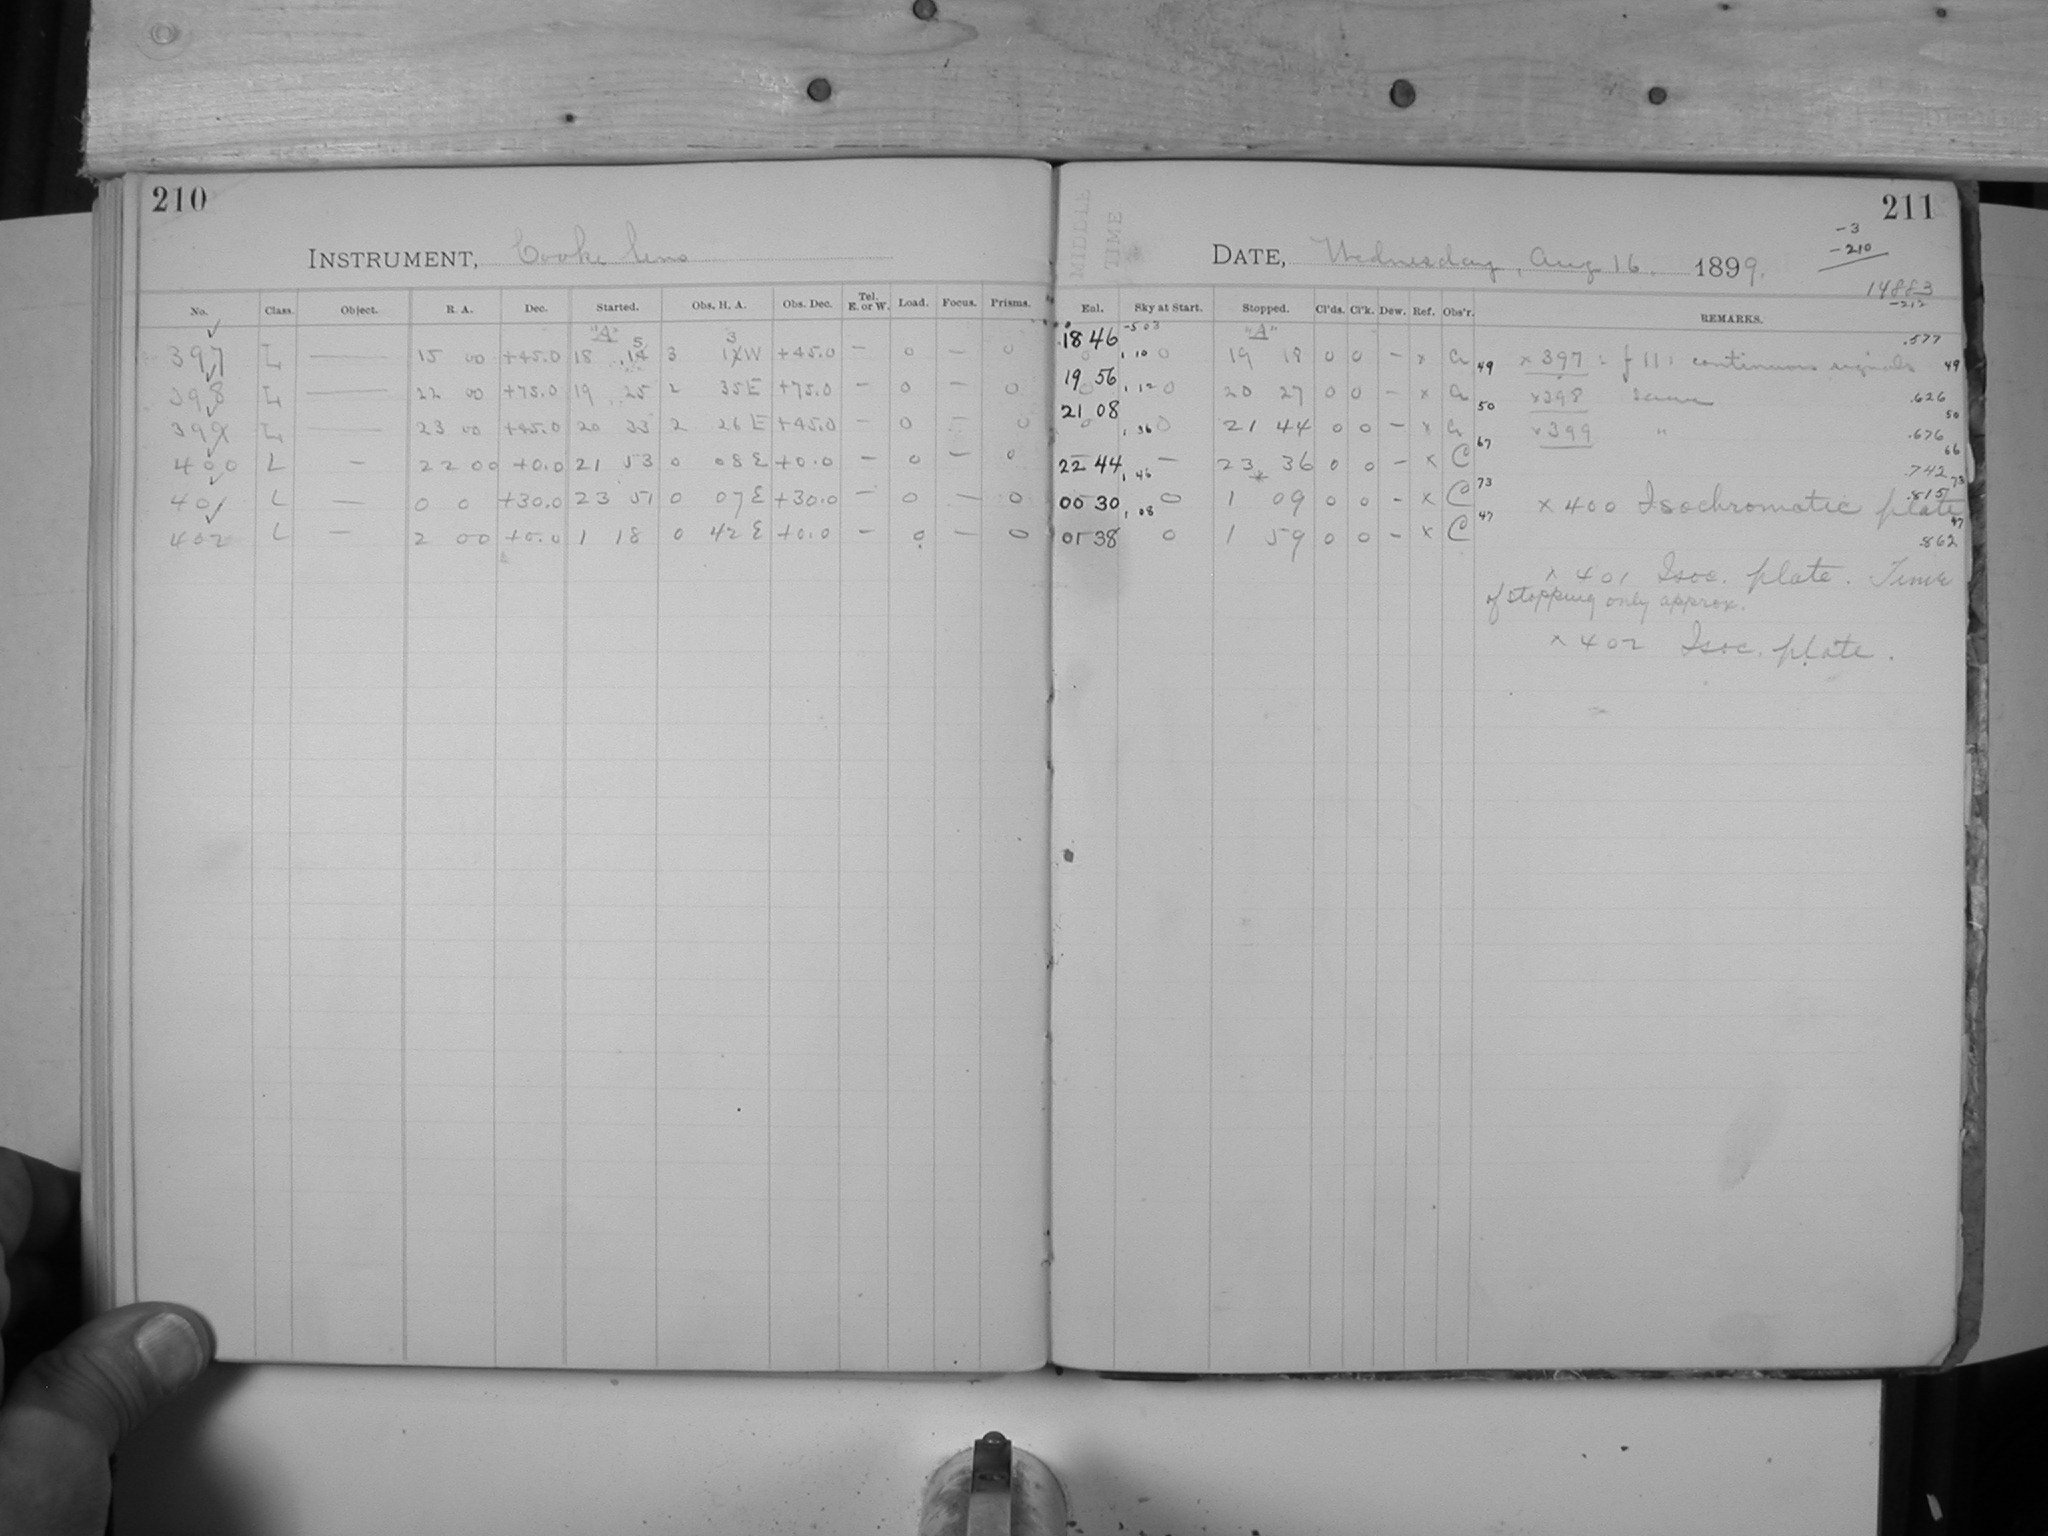 210
INSTRUMENT, Cooke lens
No. Class. Object. R. A. Dec. Started. Obs. H. A. Obs. Dec. Tel. E. or W. Load. Focus. Prisms.
"A"
397 L — 15 00 +45.0 18 14 5 3 1 3 W +45.0 — 0 — 0
398 L — 22 00 +75.0 19 25 2 35E +75.0 — 0 — 0
399 L — 23 00 +45.0 20 33 2 26 E +45.0 — 0 — 0
400 L — 22 00 +0.0 21 53 0 08 E +0.0 — 0 — 0
401 L — 0 0 +30.0 23 51 0 07 E +30.0 — 0 — 0
402 L — 2 00 +0.0 1 18 0 42 E +0.0 — 0 — 0
211
MIDDLE
TIME
-3
-210
DATE, Wednesday, Aug 16, 1899.
14883
-212
Enl. Sky at Start. Stopped. Cl'ds. Cl'k. Dew. Ref. Obs'r. REMARKS.
-503 "A" .577
18 46 0 , 10 0 19 18 0 0 — x 49 x 397 : f 11 : continuous 49
19 56 0 , 12 0 20 27 0 0 — x 50 x 398 Same .626 50
21 08 0 , 36 0 21 44 0 0 — x 67 x 399 " .676 66
22 44 , 46 — 23 36 0 0 — x C 73 .742 73
00 30 , 08 0 1 * 09 0 0 — x C 47 x 400 Isochromatic plate .815 47
01 38 0 1 59 0 0 — x C .862
x 401 Isoc. plate. Time
of stopping only approx.
x 402 Isoc. plate.